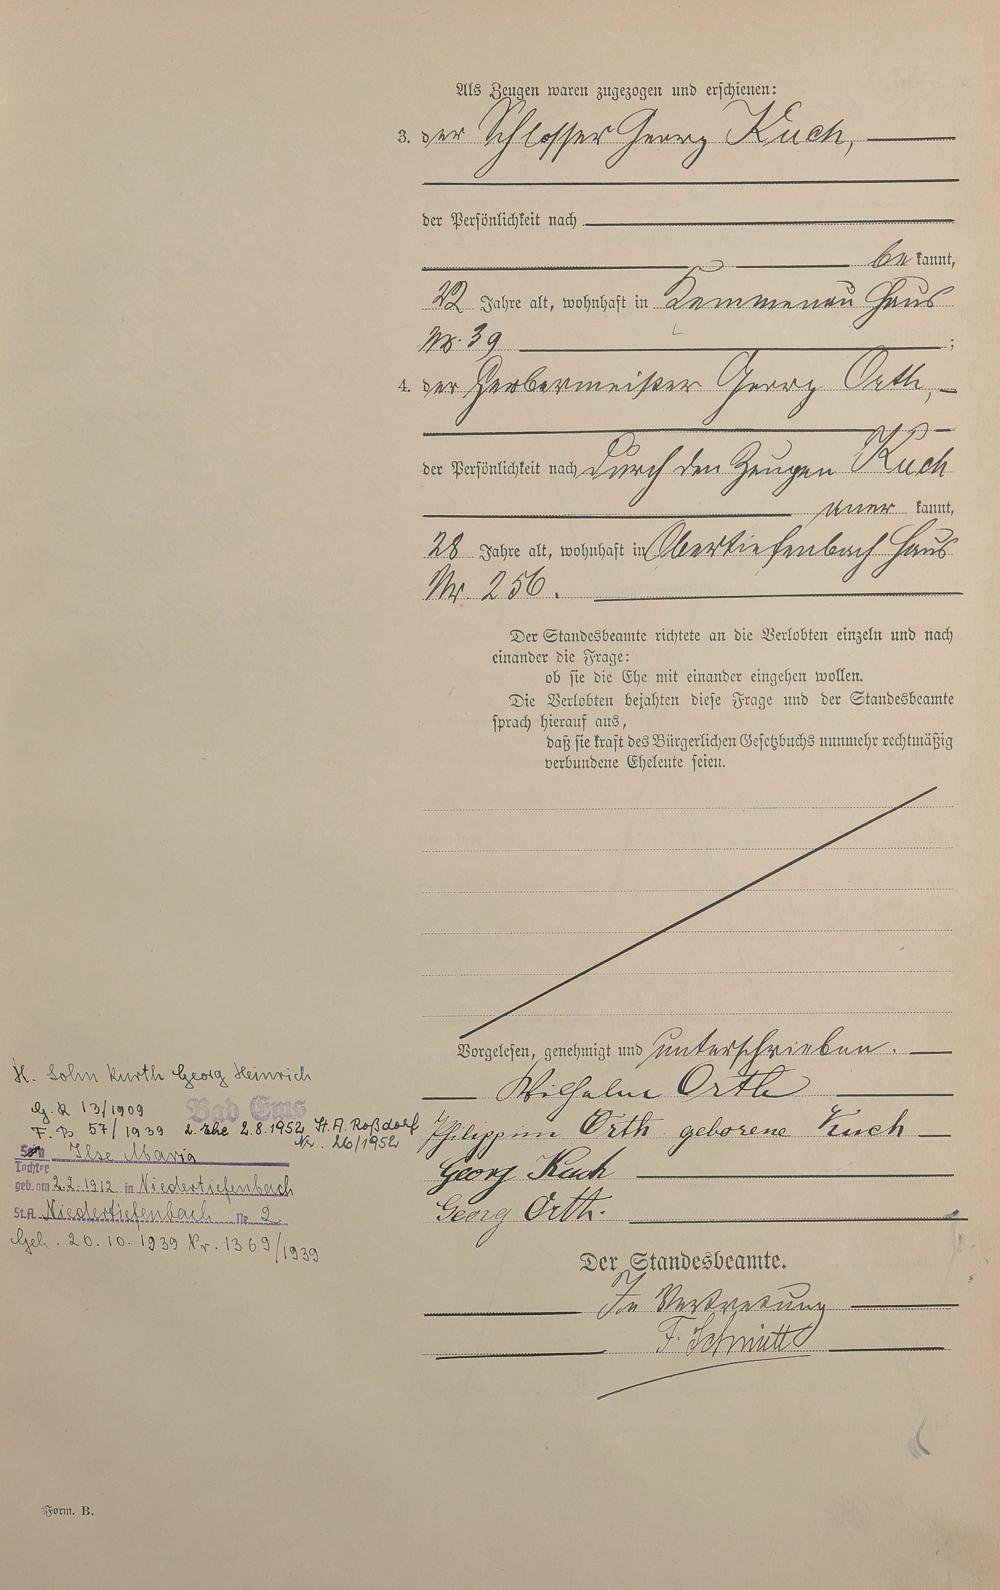 Als Zeugen waren zugezogen und erschienen:
3. der Schlosser Georg Kuch,
der Persönlichkeit nach
be kannt,
22 Jahre alt, wohnhaft in Kemmenau Haus
Nr. 39 ;
4. der Gerbermeister Georg Orth,
der Persönlichkeit nach durch den Zeugen Kuch
aner kannt,
28 Jahre alt, wohnhaft in Obertiefenbach Haus
Nr. 256.
Der Standesbeamte richtete an die Verlobten einzeln und nach
einander die Frage:
ob sie die Ehe mit einander eingehen wollen.
Die Verlobten bejahten diese Frage und der Standesbeamte
sprach hierauf aus,
daß sie kraft des Bürgerlichen Gesetzbuchs nunmehr rechtmäßig
verbundene Eheleute seien.
Vorgelesen, genehmigt und unterschrieben.
Wilhelm Orth
Philippine Orth geborene Kuch
Georg Kuch
Georg Orth.
Der Standesbeamte.
In Vertretung
F. Schmitt
K. Sohn Kurth Georg Heinrich
G.R 13/1909 Bad Ems
F.B 57/1939 2. Ehe 2.8.1952 St.A. Roßdorf
Nr. 26/1952
Sohn Ilse Maria
Tochter
geb. am 2.2.1912 in Niedertiefenbach
St.A. Niedertiefenbach Nr. 2
Geh. 20.10.1939 Nr. 1369/1939
Form. B.